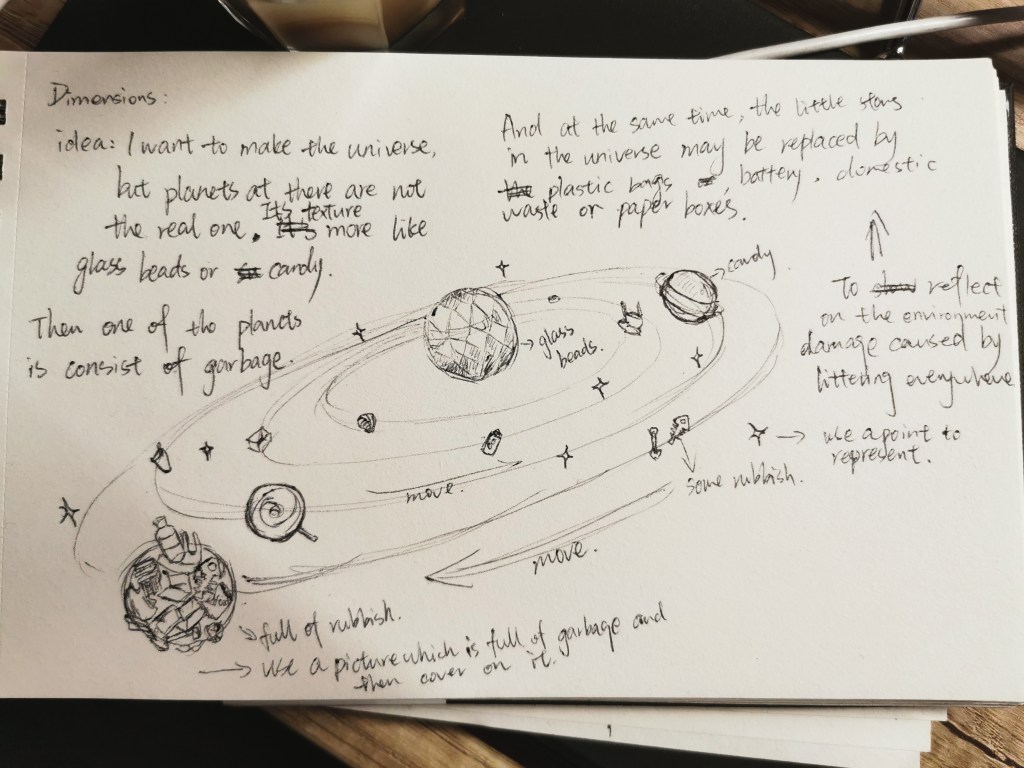 Dimensions:
idea: I want to make the universe,
but planets at there are not
the real one. It's texture more like
glass beads or candy.
Then one of the planets
is consist of garbage.
And at the same time, the little stars
in the universe may be replaced by
plastic bags battery, domestic
waste or paper boxes.
To reflect
on the environment
damage caused by
littering everywhere
candy.
glass
beads.
use a point to
represent.
some rubbish.
move.
move.
full of rubbish.
use a picture which is full of garbage and
then cover on it.